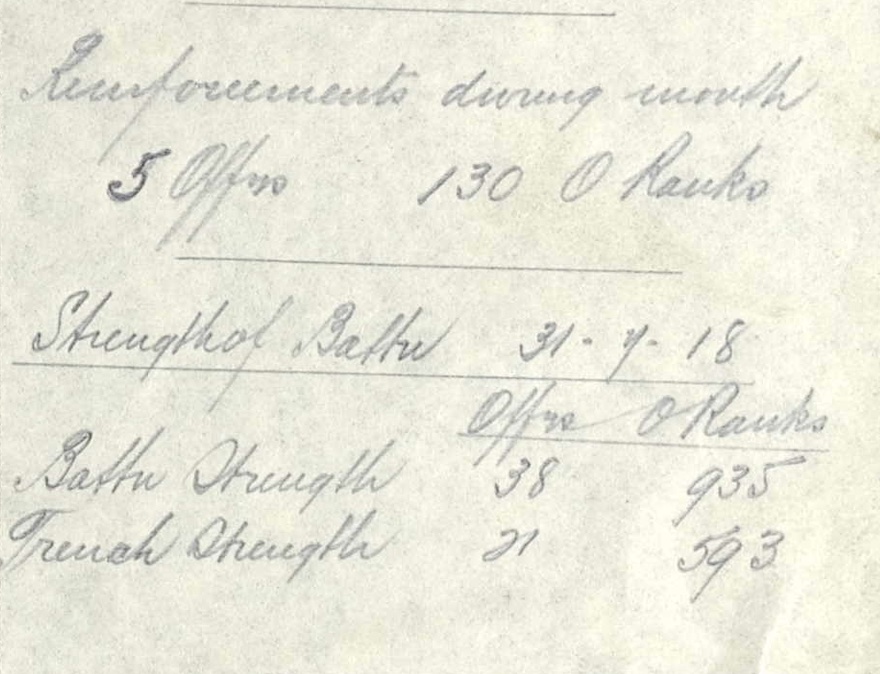 Reinforcements during month
5 Offrs 130 O Ranks
Strength of Battn 31-7-18
Offrs O Ranks
Battn Strength 38 935
Trench Strength 21 593